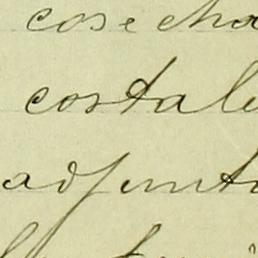 cosecha
costale
adjunto